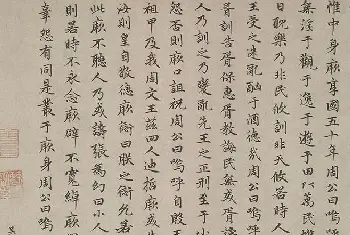 惟中身厥享國五十年周公曰嗚
無淫于觀于逸于遊于田以萬民
日耽樂乃非民攸訓非天攸若時人
王受之迷亂酗于酒德哉周公曰嗚
胥訓告胥保惠胥教誨民無或胥譸
人乃訓之乃變亂先王之正刑至于小
怨否則厥口詛祝周公曰嗚呼自殷王
祖甲及我周文王茲四人迪哲厥或告
汝則皇自敬德厥愆曰朕之愆允若
此厥不聽人乃或譸張為幻曰小人
則若時不永念厥辟不寬綽厥心
辜怨有同是叢于厥身周公曰嗚